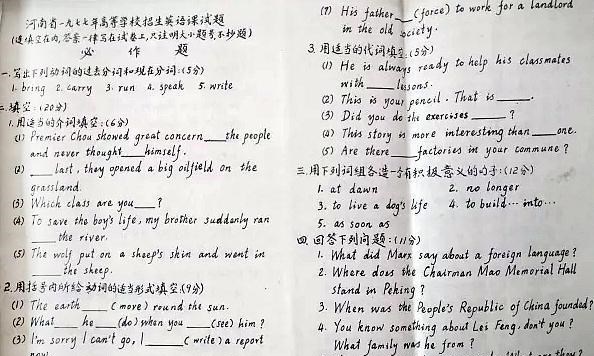 河南省一九七七年高等学校招生英语课试题
(连填空在内,答案一律写在试卷上,只注明大小题号不抄题)
必 作 题
一.写出下列动词的过去分词和现在分词:(5分)
1. bring 2. carry 3. run 4. speak 5. write
二.填空:(20分)
1.用适当的介词填空:(6分)
(1) Premier Chou showed great concern____the people
and never thought____himself.
(2) ____last, they opened a big oilfield on the
grassland.
(3) Which class are you____?
(4) To save the boy's life, my brother suddenly ran
____the river.
(5) The wolf put on a sheep's skin and went in
____the sheep.
2.用括号内所给动词的适当形式填空:(9分)
(1) The earth____(move) round the sun.
(2) What____he____(do) when you____(see) him?
(3) I'm sorry I can't go, I____(write) a report
now.
(7) His father____(force) to work for a landlord
in the old society.
3.用适当的代词填空:(5分)
(1) He is always ready to help his classmates
with____lessons.
(2) This is your pencil. That is____.
(3) Did you do the exercises____?
(4) This story is more interesting than____one.
(5) Are there____factories in your commune?
三.用下列词组各造一个有积极意义的句子:(12分)
1. at dawn 2. no longer
3. to live a dog's life 4. to build... into...
5. as soon as
四.回答下列问题:(11分)
1. What did Marx say about a foreign language?
2. Where does the Chairman Mao Memorial Hall
stand in Peking?
3. When was the People's Republic of China founded?
4. You know something about Lei Feng, don't you?
What family was he from?